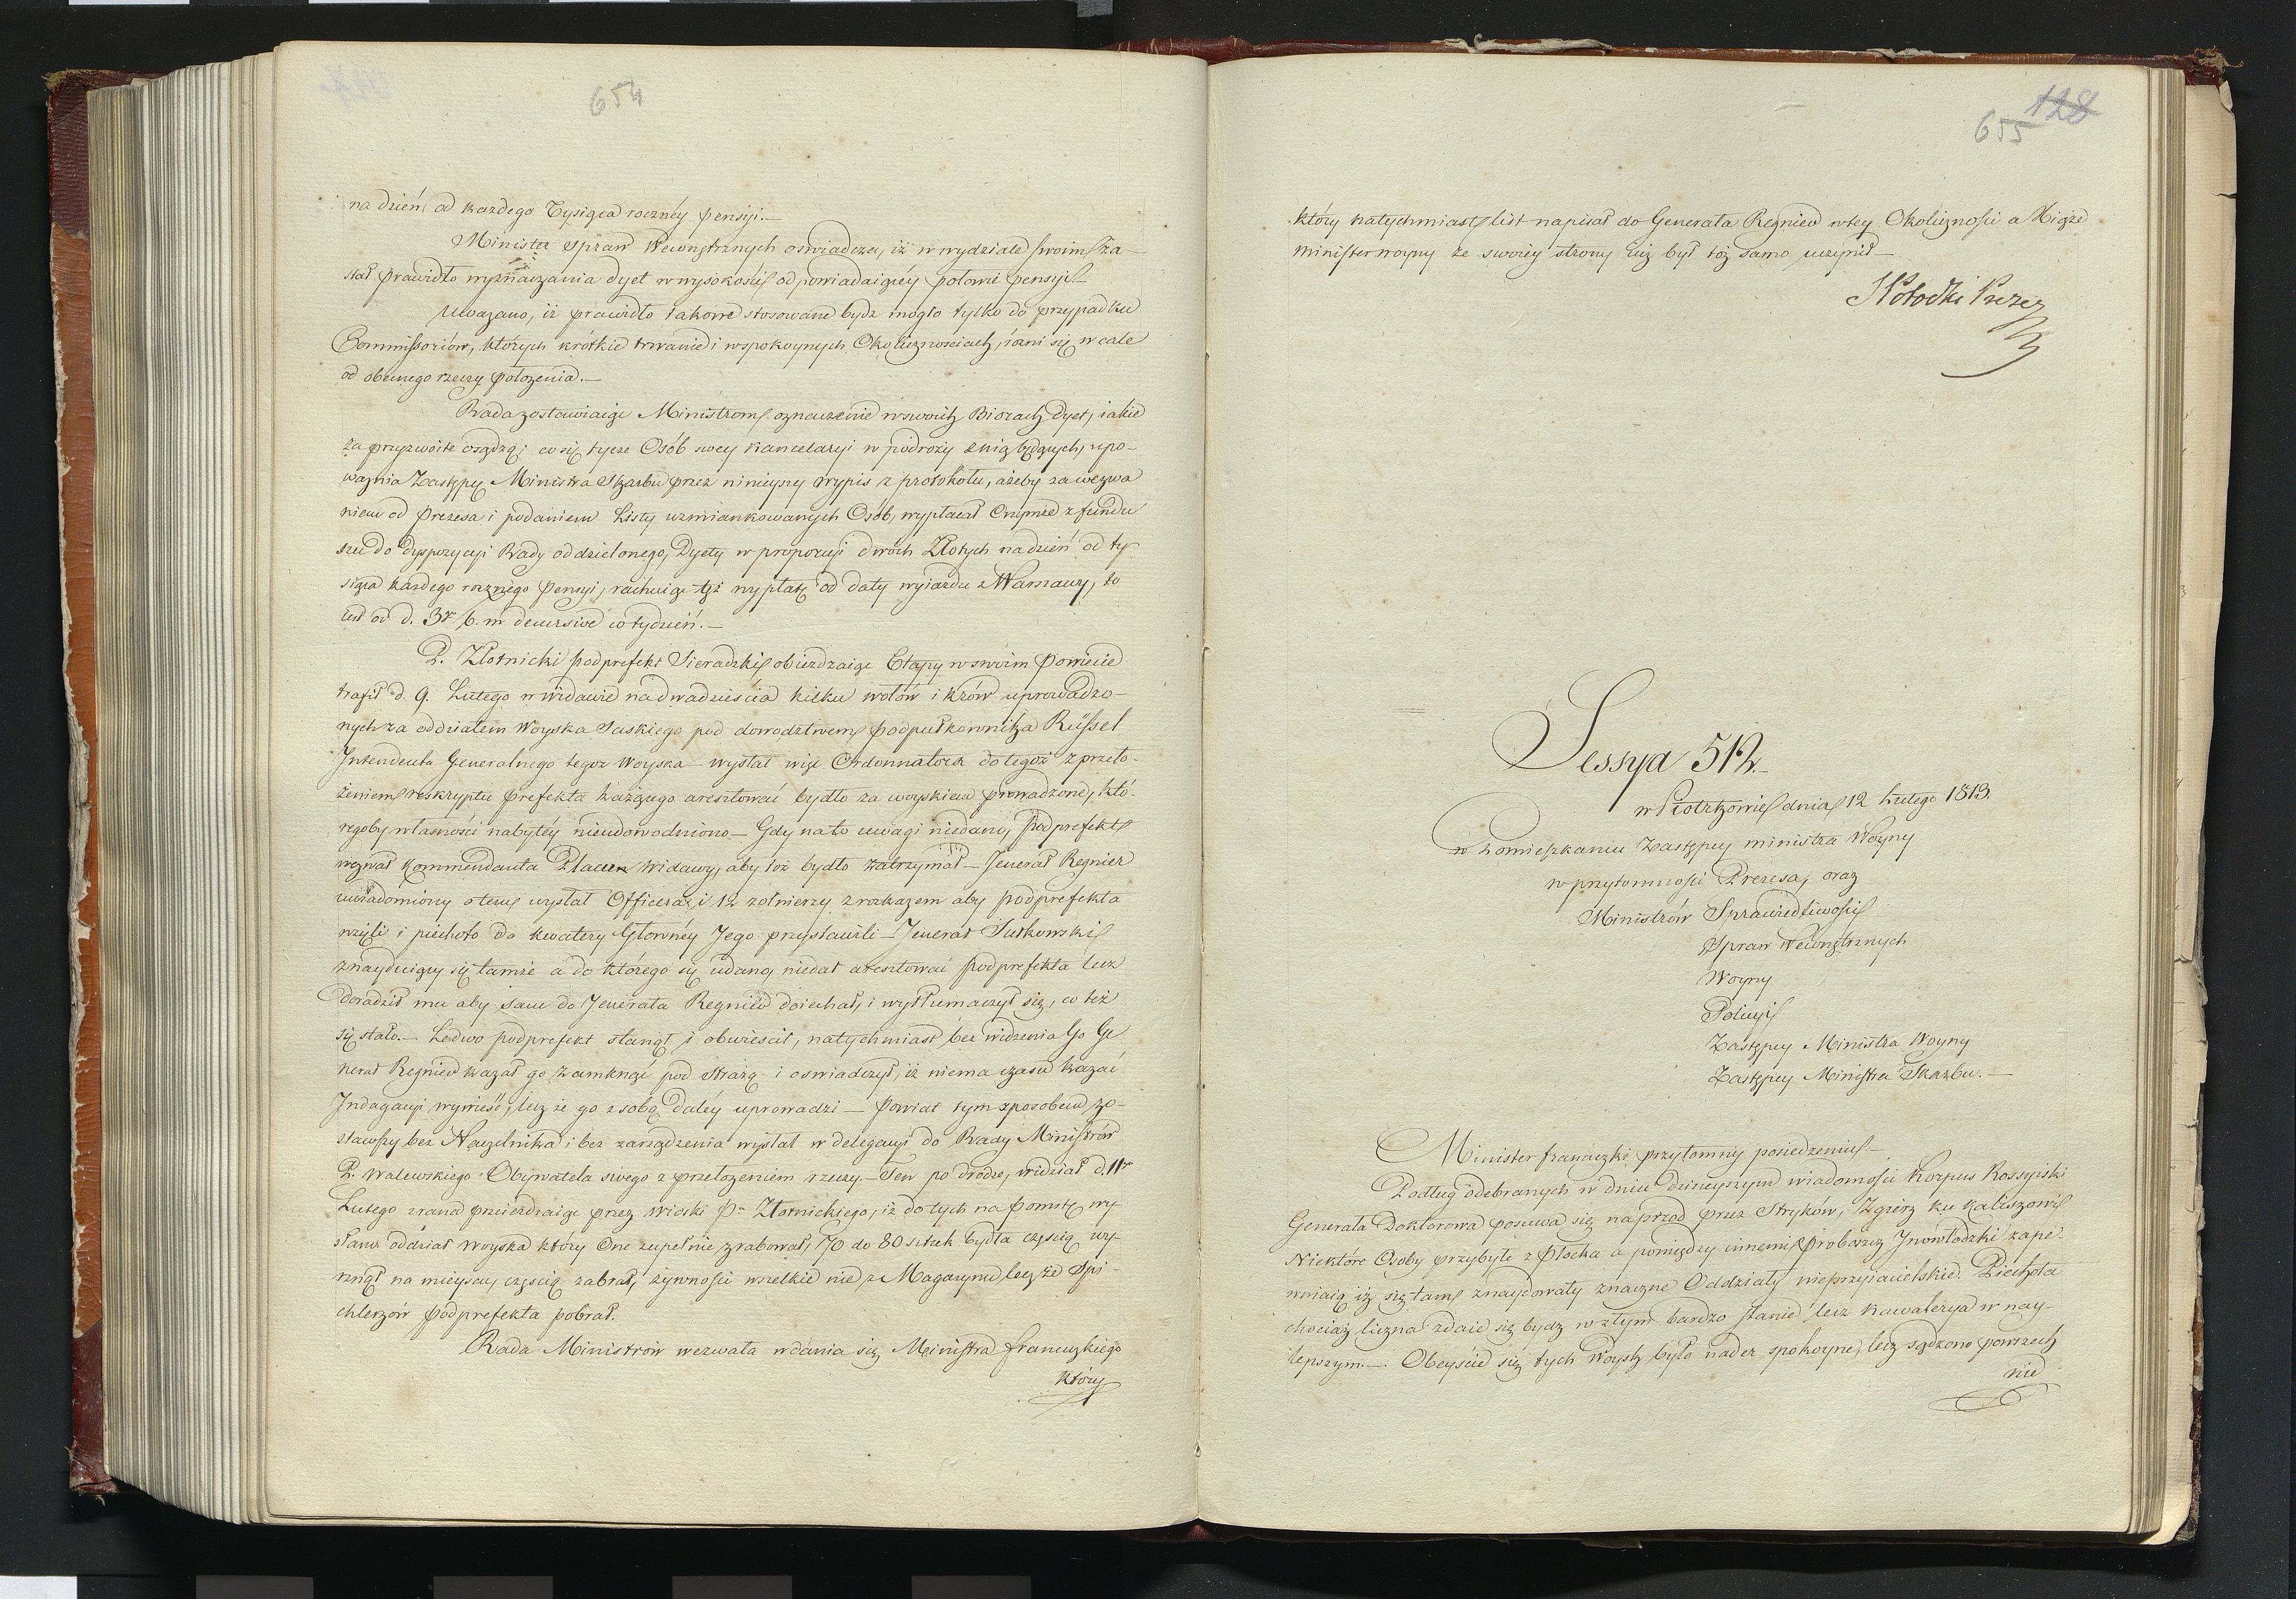 654
na dzień od każdego Tysiąca roczney pensyi.—
Minister Spraw Wewnętrznych oswiadcza, iż w wydziale swoim za-
stał prawidło wyznaczania dyet w wysokości odpowiadaiącey połowie pensyi.—
Uważano, iż prawidło takowe stosowane bydz mogło tylko do przypadku
Commissoriów, których krótkie trwanie i w spokoynych Okolicznosciach, rózni się w cale
od obecnego rzeczy położenia.—
Rada zostawiaiąc Ministrom oznaczenie w swoich Biorach Dyet, iakie
za przyzwoite osądzą; co się tycze Osób swey Kancelaryi w podroży z nią będących, upo-
ważnia Zastępcę Ministra Skarbu przez ninieyszy wypis z protokołu, ażeby za wezwa
niem od Prezesa i podaniem Listy wzmiankowanych Osób, wypłacał Onymże z fundu
szu do dyspozycyi Rady oddzielonego, Dyety w proporcyi dwóch Złotych na dzień od ty
siąca każdego rocznego pensyi, rachuiąc tęż wypłatę od daty wyiazdu z Warszawy, to
iest od d. 3go b. m decursive co tydzień.—
P. Złotnicki podprefekt Sieradzki obieżdzaiąc Etapy w swoim Powiecie
trafił d. 9. Lutego w Widawie na dwadzieścia kilku wołów i krów uprowadzo-
nych za oddziałem Woyska Saskiego pod dowodztwem podpułkownika Rüssel
Intendenta Generalnego tegoz Woyska— wysłał więc Ordonnatora do tegoż z przeło-
żeniem reskryptu prefekta każącego aresztować bydło za woyskiem prowadzone, któ-
regoby własności nabytey nieudowodniono— Gdy na to uwagi niedano, podprefekt
wezwał Kommendanta Placu w Widawy, aby toż bydło zatrzymał— Jenerał Regnier
uwiadomiony o tem wysłał Officera i 12 zołnierzy z rozkazem aby podprefekta
wzięli i piechoto do kwatery Głowney Jego przystawili— Jenerał Sułkowski
znayduiący się tamże a do którego się udano niedał aresztować podprefekta lecz
doradził mu aby sam do Jenerała Regnier doiechał, i wytłumaczył się, co też
się stało.— Ledwo podprefekt stanął i obwieścił, natychmiast bez widzenia Go Ge
nerał Regnier kazał go zamknąć pod strażą i oswiadczył, iż niema czasu kazać
Indagacyi wywieść, lecz że go z sobą daley uprowadzi— Powiat tym sposobem zo-
stawszy bez Naczelnika i bez zarządzenia wysłał w delegacyi do Rady Ministrów
P. Walewskiego Obywatela swego z przełożeniem rzeczy.— Ten po drodze, widział d. 11go
Lutego zrana przeieżdzaiąc przez wioski Pa Złotnickiego, iż do tych na pomstę wy
słano oddział woyska który One zupełnie zrabował, 70 do 80 sztuk bydła częścią wy-
rznął na mieyscu, częścią zabrał, żywności wszelkie nie z Magazynu lecz ze Spi-
chlerzów podprefekta pobrał.
Rada Ministrów wezwała wdania się Ministra francuzkiego
który
128
655
który natychmiast list napisał do Generała Regnier w tey Okoliczności a Xiąże
minister woyny ze swoiey strony iuż był toż samo uczynił—
Potocki Prezes
Sessya 512.
w Piotrkowie dnia 12 Lutego 1813.
w Pomieszkaniu Zastępcy ministra Woyny
w przytomności Prezesa, oraz
Ministrów Sprawiedliwości
Spraw Wewnętrznych
Woyny
Policyi
Zastępcy Ministra Woyny
Zastępcy Ministra Skarbu.—
Minister francuzki przytomny posiedzeniu.—
Podług odebranych w dniu dzisieyszym wiadomości Korpus Rossyiski
Generała Doktorowa posuwa się naprzod przez Stryków, Zgierz ku Kaliszowi
Niektóre Osoby przybyłe z Płocka a pomiędzy innemi proboszcz Inowłodzki zape-
wniaią iż się tam znaydowały znaczne Oddziały nieprzyiacielskie. Piechota
chociaż liczna zdaie się bydz w złym bardzo stanie lecz kawalerya w nay-
lepszym.— Obeyście się tych Woysk było nader spokoyne, lecz sądzono powszech
nie